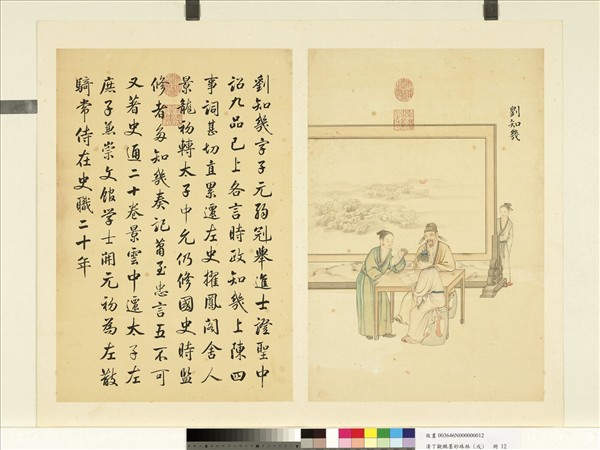 劉知幾
劉知幾字子元弱冠舉進士證聖中
詔九品已上各言時政知幾上陳四
事詞甚切直累遷左史擢鳳閣舍人
景龍初轉太子中允仍修國史時監
修者多知幾奏記蕭至忠言五不可
又著史通二十卷景雲中遷太子左
庶子兼崇文館学士開元初為左散
騎常侍在史職二十年
故畫 003646N000000012
清丁觀鵬墨妙珠林（戌） 冊 12